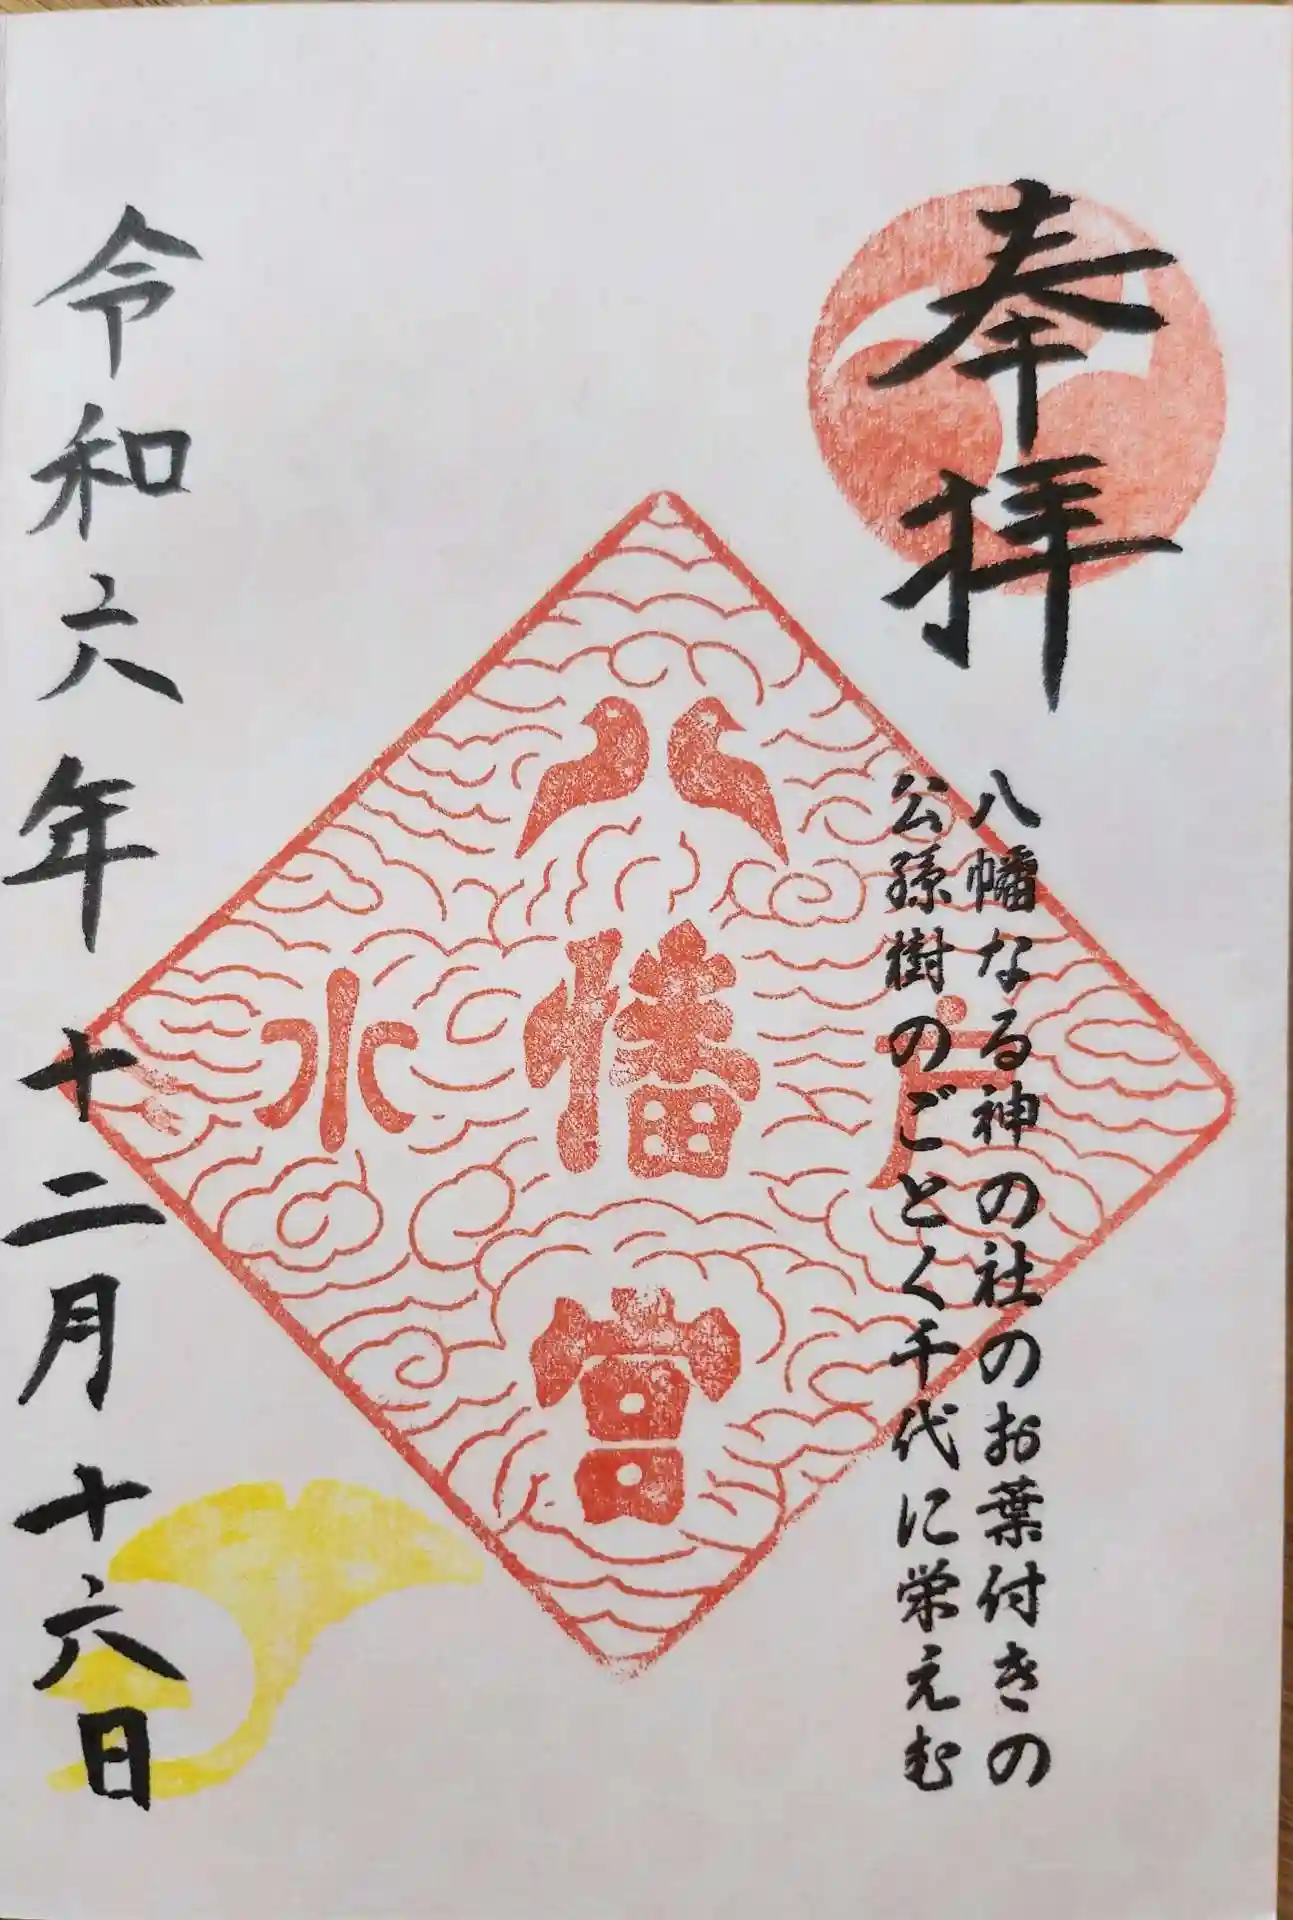 奉拝
八幡なる神の社のお葉付きの
公孫樹のごとく千代に栄えむ
水戸
八幡宮
令和六年十二月十六日